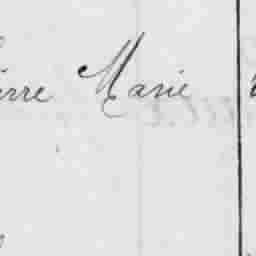 ierre Marie